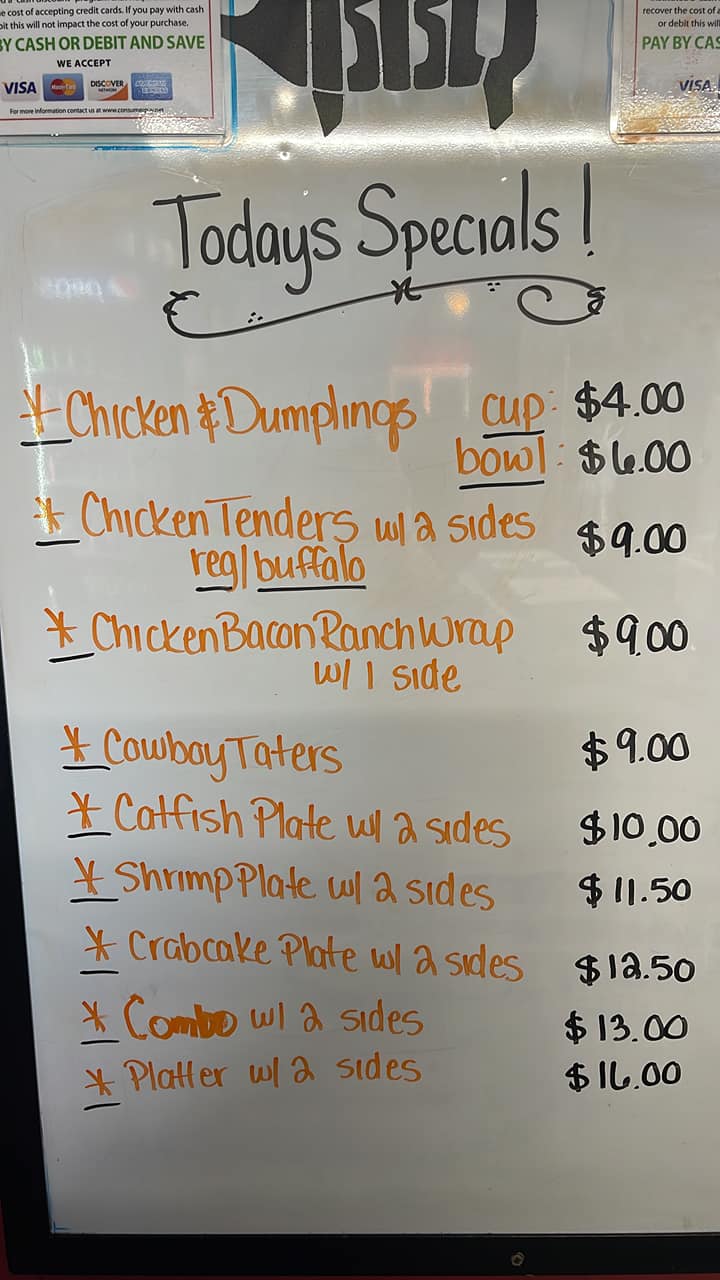 e cost of accepting credit cards. If you pay with cash
bit this will not impact the cost of your purchase.
BY CASH OR DEBIT AND SAVE
WE ACCEPT
VISA MasterCard DISCOVER NETWORK AMERICAN EXPRESS
For more information contact us at
recover the cost of a
or debit this will
PAY BY CAS
VISA
Todays Specials!
* Chicken & Dumplings cup: $4.00
bowl: $6.00
* Chicken Tenders w/ 2 sides $9.00
reg/buffalo
* Chicken Bacon Ranch Wrap $9.00
w/ 1 side
* Cowboy Taters $9.00
* Catfish Plate w/ 2 sides $10.00
* Shrimp Plate w/ 2 sides $11.50
* Crabcake Plate w/ 2 sides $12.50
* Combo w/ 2 sides $13.00
* Platter w/ 2 sides $16.00